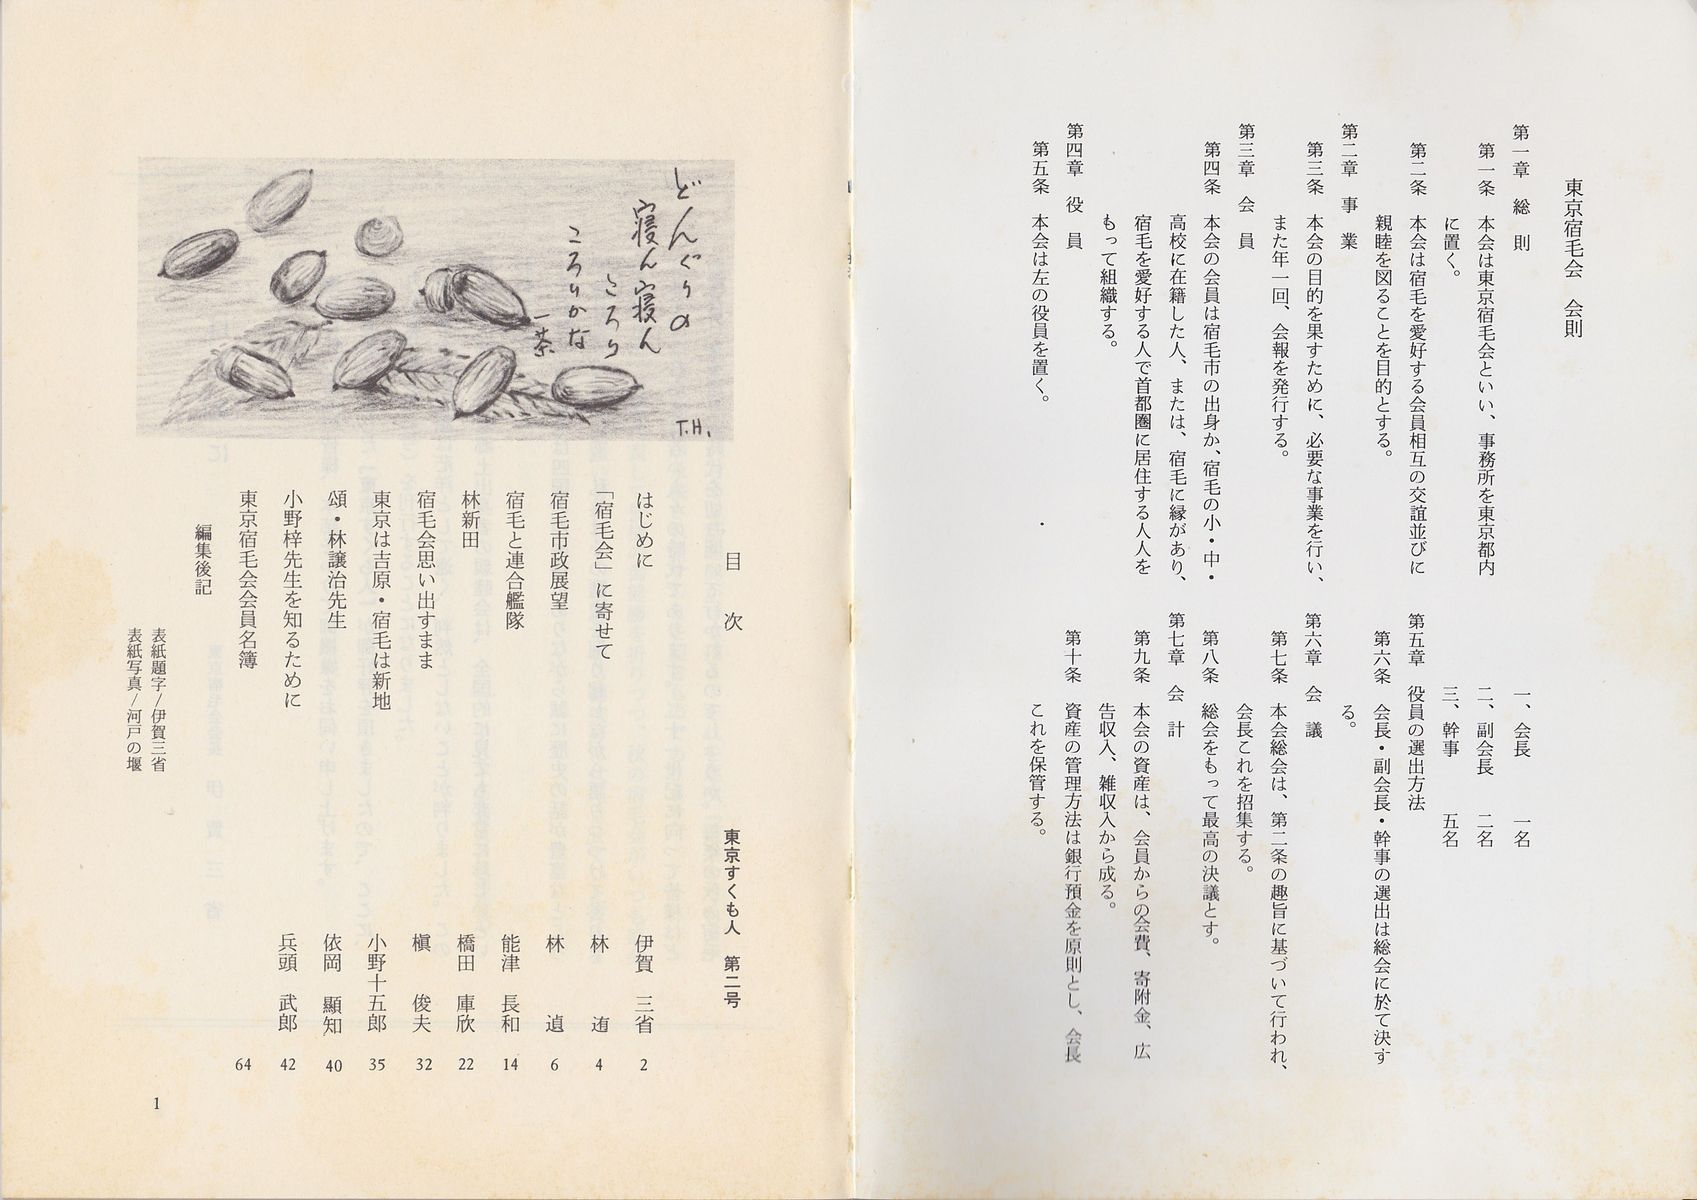 東京宿毛会　会則
第一章　総　則
第一条　本会は東京宿毛会といい、事務所を東京都内
に置く。
第二条　本会は宿毛を愛好する会員相互の交誼並びに
親睦を図ることを目的とする。
第二章　事　業
第三条　本会の目的を果すために、必要な事業を行い、
また年一回、会報を発行する。
第三章　会　員
第四条　本会の会員は宿毛市の出身か、宿毛の小・中・
高校に在籍した人、または、宿毛に縁があり、
宿毛を愛好する人で首都圏に居住する人人を
もって組織する。
第四章　役　員
第五条　本会は左の役員を置く。
一、会長　　一名
二、副会長　二名
三、幹事　　五名
第五章　役員の選出方法
第六条　会長・副会長・幹事の選出は総会に於て決す
る。
第六章　会　議
第七条　本会総会は、第二条の趣旨に基づいて行われ、
会長これを招集する。
第八条　総会をもって最高の決議とす。
第七章　会　計
第九条　本会の資産は、会員からの会費、寄附金、広
告収入、雑収入から成る。
第十条　資産の管理方法は銀行預金を原則とし、会長
これを保管する。
どんぐりの
寝ん寝ん
ころり
ころりかな
一茶
T.H.
東京すくも人　第二号
目　次
はじめに　伊賀　三省　2
「宿毛会」に寄せて　林　　迶　4
宿毛市政展望　林　　遉　6
宿毛と連合艦隊　能津　長和　14
林新田　橋田　庫欣　22
宿毛会思い出すまま　槇　　俊夫　32
東京は吉原・宿毛は新地　小野十五郎　35
頌・林譲治先生　依岡　顯知　40
小野梓先生を知るために　兵頭　武郎　42
東京宿毛会会員名簿　64
編集後記
表紙題字/伊賀三省
表紙写真/河戸の堰
1